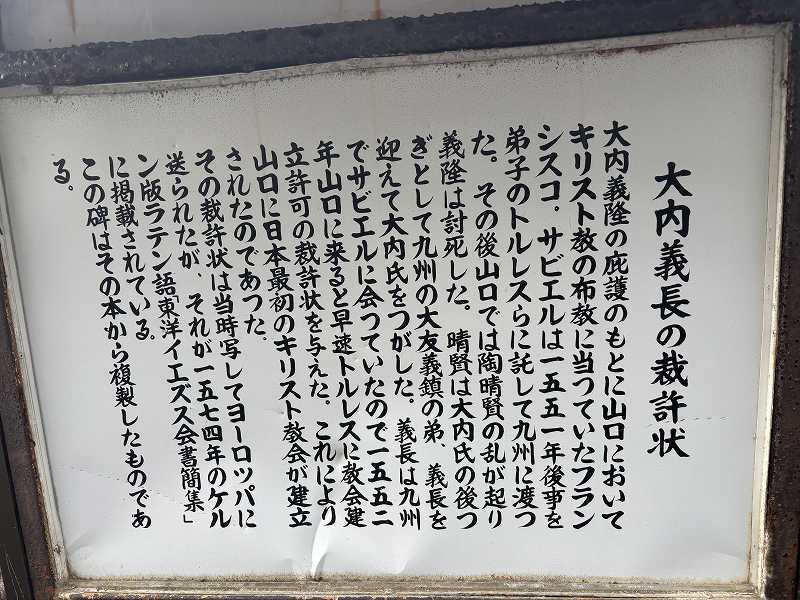 大内義長の裁許状
大内義隆の庇護のもとに山口において
キリスト教の布教に当つていたフラン
シスコ・サビエルは一五五一年後事を
弟子のトルレスらに託して九州に渡つ
た。その後山口では陶晴賢の乱が起り
義隆は討死した。晴賢は大内氏の後つ
ぎとして九州の大友義鎮の弟、義長を
迎えて大内氏をつがした。義長は九州
でサビエルに会つていたので一五五二
年山口に来ると早速トルレスに教会建
立許可の裁許状を与えた。これにより
山口に日本最初のキリスト教会が建立
されたのであつた。
その裁許状は当時写してヨーロッパに
送られたが、それが一五七四年のケル
ン版ラテン語「東洋イエズス会書簡集」
に掲載されている。
この碑はその本から複製したものであ
る。